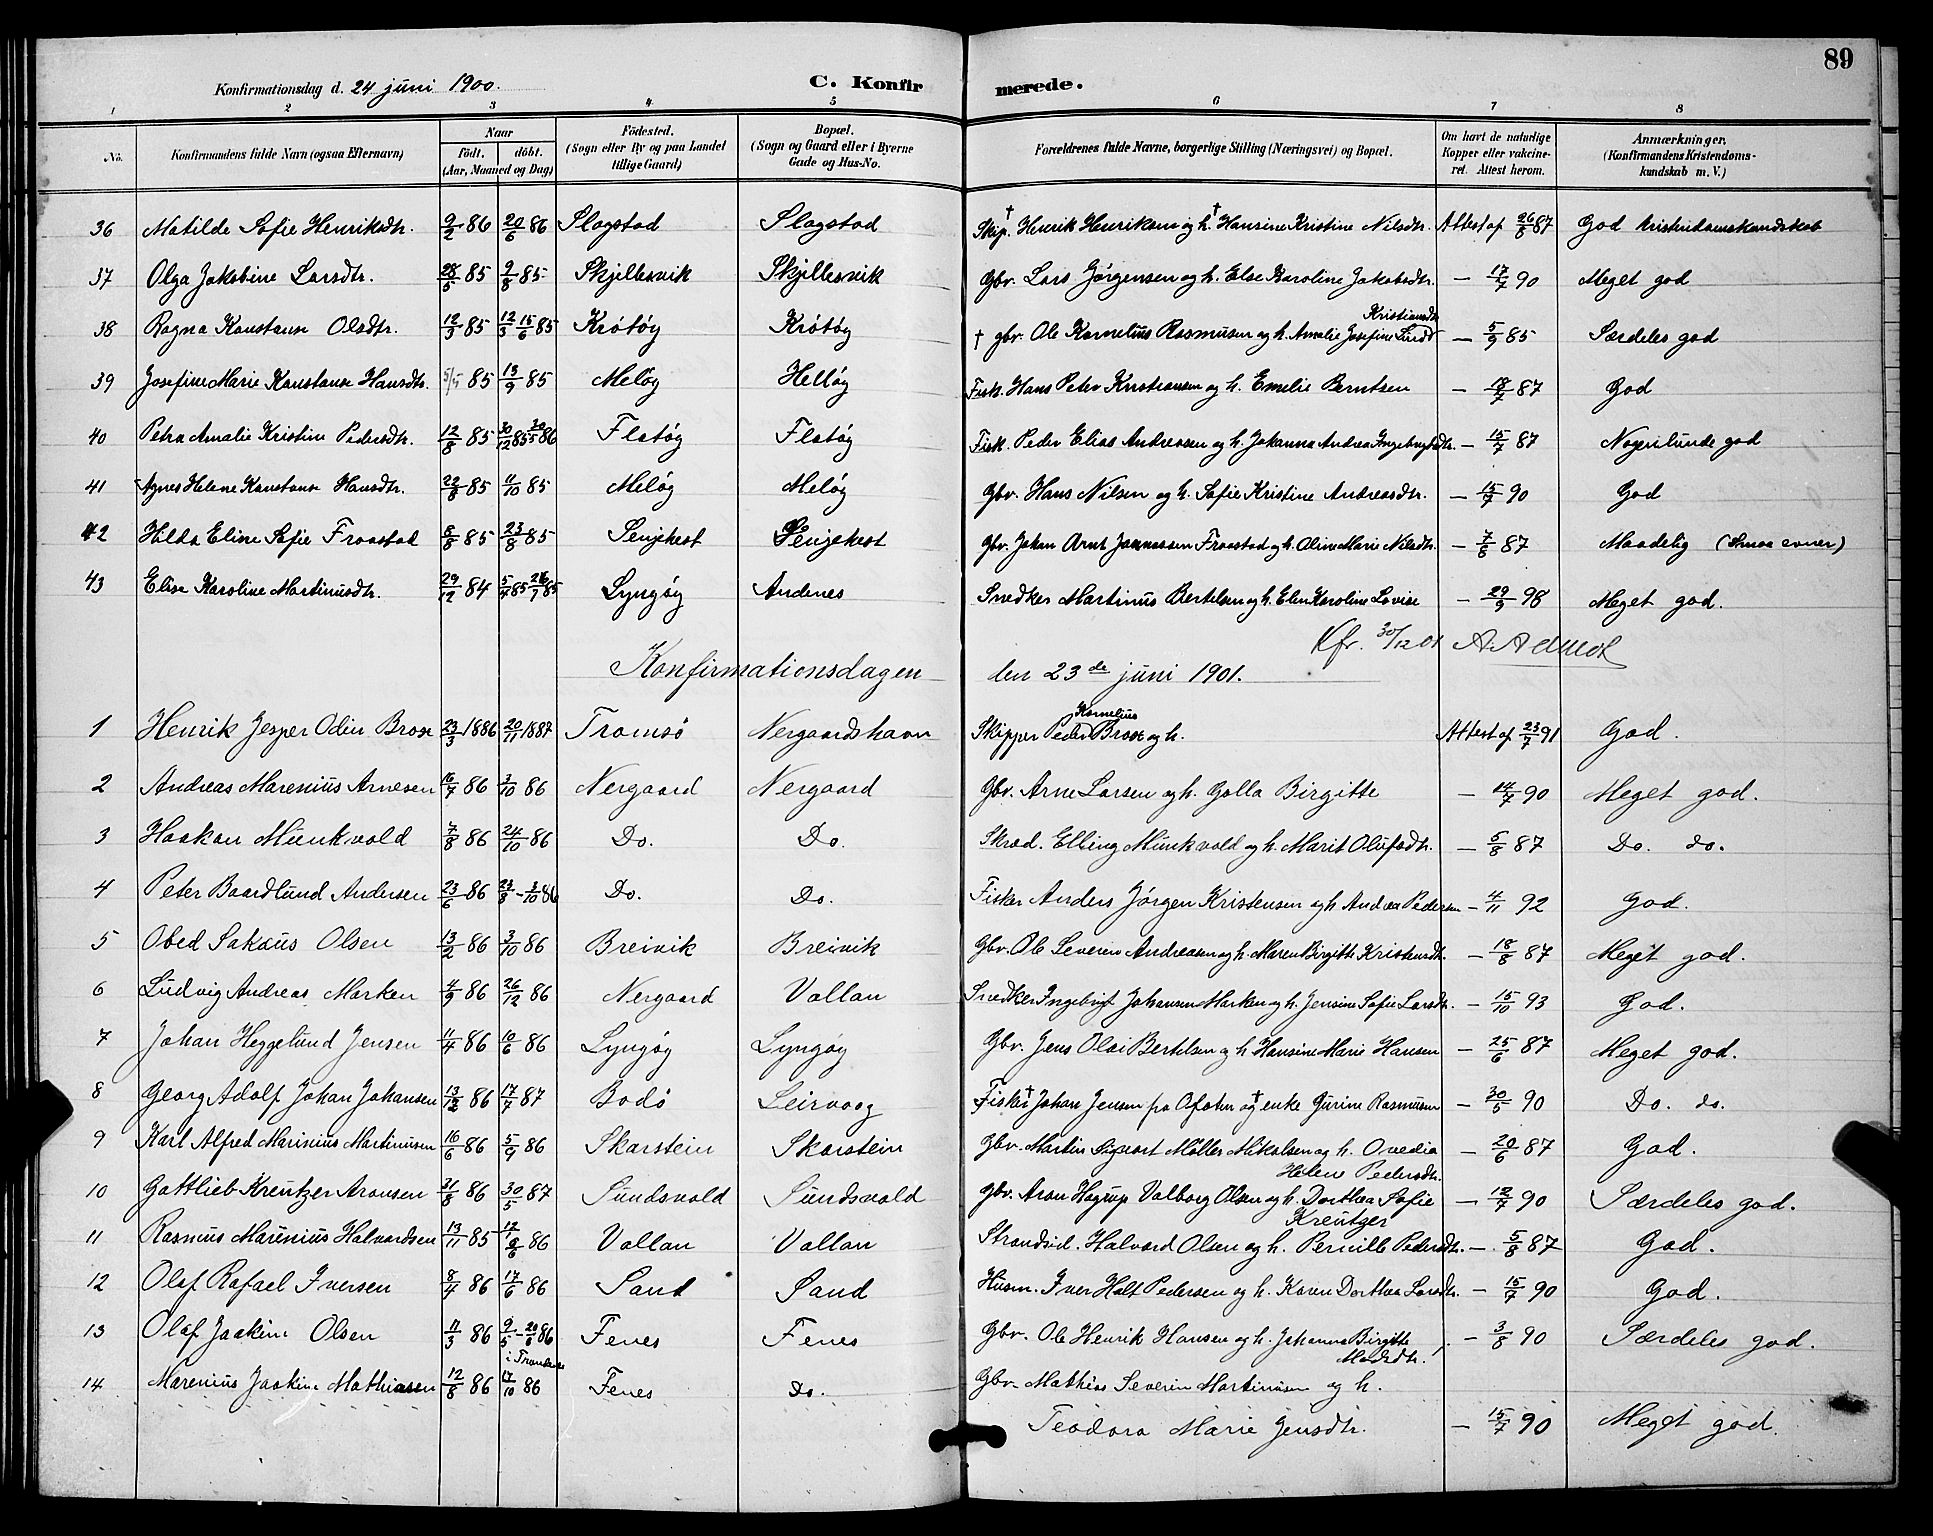 89
Konfirmationsdag d. 24 juni 1900. C. Konfirmerede.
1 2 3 4 5 6 7 8
No. Konfirmandens fulde Navn (ogsaa Efternavn) Naar födt. döbt. (Aar, Maaned og Dag) Födested. (Sogn eller By og paa Landet tillige Gaard) Bopæl. (Sogn og Gaard eller i Byerne Gade og Hus-No. Forældrenes fulde Navne, borgerlige Stilling (Næringsvei) og Bopæl. Om havt de naturlige Kopper eller vakcineret. Attest herom. Anmærkninger. (Konfirmandens Kristendomskundskab m. V.)
36 Matilde Sofie Henriksdtr. 9/2 86 20/6 86 Slagstad Slagstad Skip. † Henrik Henriksen og h. † Hansine Kristine Nilsdtr. Attest af 26/8 87 God kristendomskundskab
37 Olga Jakobine Larsdtr. 28/5 85 9/8 85 Skjellesvik Skjellesvik Gbr. Lars Jørgensen og h. Else Karoline Jakobsdtr. — 17/7 90 Meget god
38 Ragna Konstanse Olsdtr. 12/3 85 12/3 15/6 85 Krötöy Krötöy † gbr. Ole Kornelius Rasmusen og h. Amalie Josefine Kristiansdtr. Lind — 5/9 85 Særdeles god
39 Josefine Marie Konstanse Hansdtr. 5/5 85 13/9 85 Meløy Helløy Fisk. Hans Peter Kristiansen og h. Emelie Berntsen — 18/7 87 God
40 Petra Amalie Kristine Pedersdtr. 12/8 85 30/12 85 30/5 86 Flatøy Flatøy Fisk. Peder Elias Andreassen og h. Johanna Andrea Ingebrigtsdtr. — 15/7 87 Nogenlunde god
41 Agnes Helene Konstanse Hansdtr. 22/8 85 11/10 85 Meløy Meløy Gbr. Hans Nilsen og h. Sofie Kristine Andreasdtr. — 15/7 90 God
42 Hilda Eline Sofie Fraastad 8/8 85 23/8 85 Senjehest Senjehest Gbr. Johan Arnt Johannessen Fraastad og h. Oline Marie Nilsdtr. — 7/6 87 Maadelig (Smaa evner)
43 Elise Karoline Martinusdtr. 29/12 84 5/4 85 26/7 85 Lyngøy Andenes Snedker Martinus Bertelsen og h. Elen Karoline Lovise — 29/9 98 Meget god.
Kfr. 30/12 01
Konfirmationsdagen den 23de juni 1901.
1 Henrik Jesper Odin Brose 23/3 1886 20/11 1887 Tromsö Nergaardshavn Skipper Peder Kornelius Brose og h. Attest af 23/7 91 God.
2 Andreas Marenius Arnesen 16/7 86 3/10 86 Nergaard Nergaard Gbr. Arne Larsen og h. Golla Birgitte — 14/7 90 Meget god.
3 Haakon Munkvold 7/8 86 24/10 86 Do. Do. Skræd. Elling Munkvold og h. Marit Olufsdtr. — 5/8 87 Do. do.
4 Peter Baardlund Andersen 23/6 86 23/8 - 3/10 86 Do. Do. Fisker Anders Jørgen Kristensen og h Andrea Pedersen — 4/11 92 God.
5 Obed Sakæus Olsen 13/2 86 3/10 86 Breivik Breivik Gbr. Ole Severin Andreasen og h. Maren Birgitte Kristensdtr. — 18/8 87 Meget god.
6 Ludvig Andreas Marken 4/9 86 26/12 86 Nergaard Vollan Snedker Ingebrigt Johansen Marken og h. Jensine Sofie Larsdtr. — 15/10 93 God.
7 Johan Heggelund Jensen 11/4 86 10/6 86 Lyngøy Lyngøy Gbr. Jens Olai Bertelsen og h Hansine Marie Hansen — 25/6 87 Meget god.
8 Georg Adolf Johan Johansen 13/12 86 17/7 87 Bodö Leirvaag Fisker † Johan Jensen fra Ofoten og † enke Gurine Rasmusen — 30/5 90 Do. do.
9 Karl Alfred Marinius Martinusen 16/6 86 5/9 86 Skarstein Skarstein Gbr. Martin Sigvart Møller Mikalsen og h. Ovedia Helene Pedersdtr. — 20/6 87 God.
10 Gottlieb Kreutzer Aronsen 21/8 86 30/5 87 Sundsvold Sundsvold Gbr. Aron Hagrup Valborg Olsen og h. Dorthea Sofie Kreutzer — 12/7 90 Særdeles god.
11 Rasmus Marenius Halvardsen 13/11 85 12/1 9/6 86 Vollan Vollan Strandsid. Halvard Olsen og h. Pernille Pedersdtr. — 5/8 87 God.
12 Olaf Rafael Iversen 8/4 86 17/6 86 Sand Sand Husm. Iver Holt Pedersen og h. Karen Dorthea Larsdtr. — 15/7 90 God.
13 Olaf Joakim Olsen 11/3 86 9/5 - 20/6 86 Fenes Fenes Gbr. Ole Henrik Hansen og h. Johanna Birgitte Madsdtr. — 3/8 90 Særdeles god.
14 Marenius Joakim Mathiasen 12/8 86 i Trondenes 17/10 86 Fenes Do. Gbr. Mathias Severin Martinusen og h.
Teodora Marie Jensdtr. — 15/7 90 Meget god.